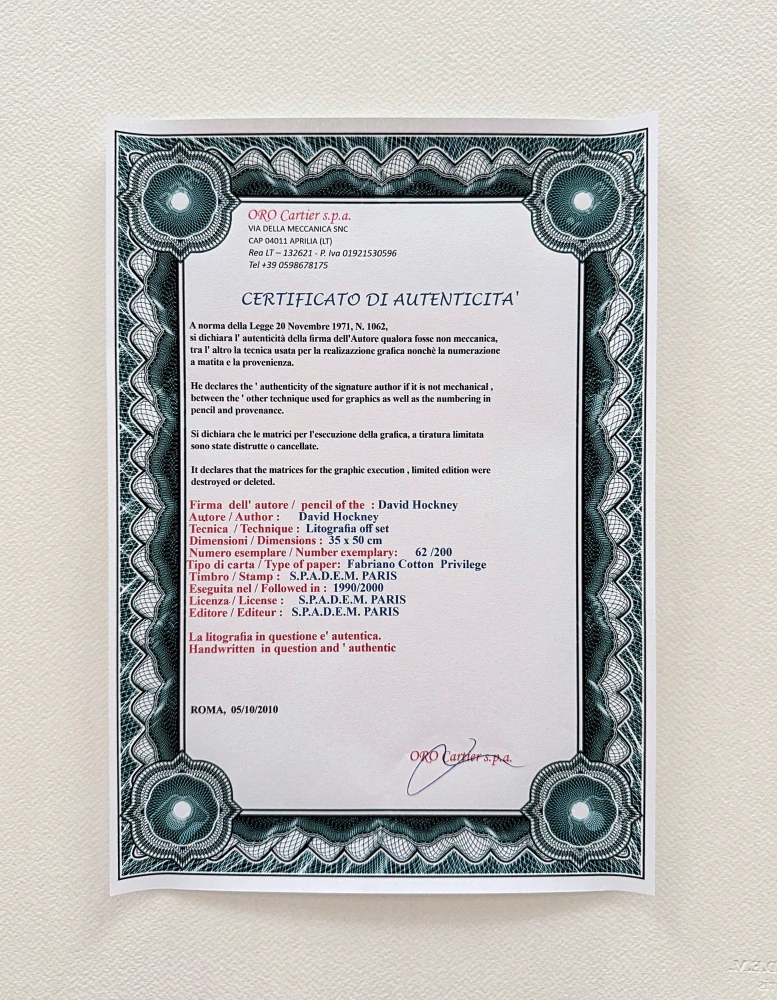 ORO Cartier s.p.a.
VIA DELLA MECCANICA SNC
CAP 04011 APRILIA (LT)
Rea LT – 132621 - P. Iva 01921530596
Tel +39 0598678175
CERTIFICATO DI AUTENTICITA'
A norma della Legge 20 Novembre 1971, N. 1062,
si dichiara l' autenticità della firma dell'Autore qualora fosse non meccanica,
tra l' altro la tecnica usata per la realizazzione grafica nonchè la numerazione
a matita e la provenienza.
He declares the ' authenticity of the signature author if it is not mechanical ,
between the ' other technique used for graphics as well as the numbering in
pencil and provenance.
Si dichiara che le matrici per l'esecuzione della grafica, a tiratura limitata
sono state distrutte o cancellate.
It declares that the matrices for the graphic execution , limited edition were
destroyed or deleted.
Firma dell' autore / pencil of the : David Hockney
Autore / Author : David Hockney
Tecnica / Technique : Litografia off set
Dimensioni / Dimensions : 35 x 50 cm
Numero esemplare / Number exemplary: 62 /200
Tipo di carta / Type of paper: Fabriano Cotton Privilege
Timbro / Stamp : S.P.A.D.E.M. PARIS
Eseguita nel / Followed in : 1990/2000
Licenza / License : S.P.A.D.E.M. PARIS
Editore / Editeur : S.P.A.D.E.M. PARIS
La litografia in questione e' autentica.
Handwritten in question and ' authentic
ROMA, 05/10/2010
ORO Cartier s.p.a.